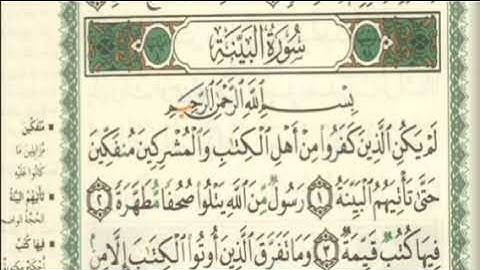 سُورَةُ البَيِّنَةِ
بِسْمِ اللَّهِ الرَّحْمَٰنِ الرَّحِيمِ
لَمْ يَكُنِ الَّذِينَ كَفَرُوا مِنْ أَهْلِ الْكِتَابِ وَالْمُشْرِكِينَ مُنفَكِّينَ
حَتَّىٰ تَأْتِيَهُمُ الْبَيِّنَةُ ١ رَسُولٌ مِّنَ اللَّهِ يَتْلُوا صُحُفًا مُّطَهَّرَةً ٢
فِيهَا كُتُبٌ قَيِّمَةٌ ٣ وَمَا تَفَرَّقَ الَّذِينَ أُوتُوا الْكِتَابَ إِلَّا مِن
مُنفَكِّينَ
مُزَايِلِينَ مَا
كَانُوا عَلَيْهِ
تَأْتِيَهُمُ الْبَيِّنَةُ
فِيهَا كُتُبٌ